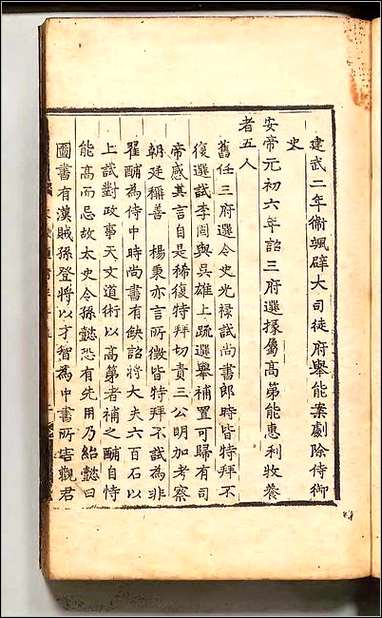 建武二年衞颯辟大司徒府舉能案劇除侍御
史
安帝元初六年詔三府選掾屬高第能惠利牧養
者五人
舊任三府選令史光祿試尚書郎時皆特拜不
復選試李固與吳雄上疏選舉補置可歸有司
帝感其言自是稀復特拜切責三公明加考察
朝廷稱善 楊秉亦言所徵皆特拜不試為非
翟酺為侍中時尚書有缺詔將大夫六百石以
上試對政事天文道術以高第者補之酺自恃
能高而忌故太史令孫懿恐有先用乃紿懿曰
圖書有漢賊孫登將以才智為中書所害觀君